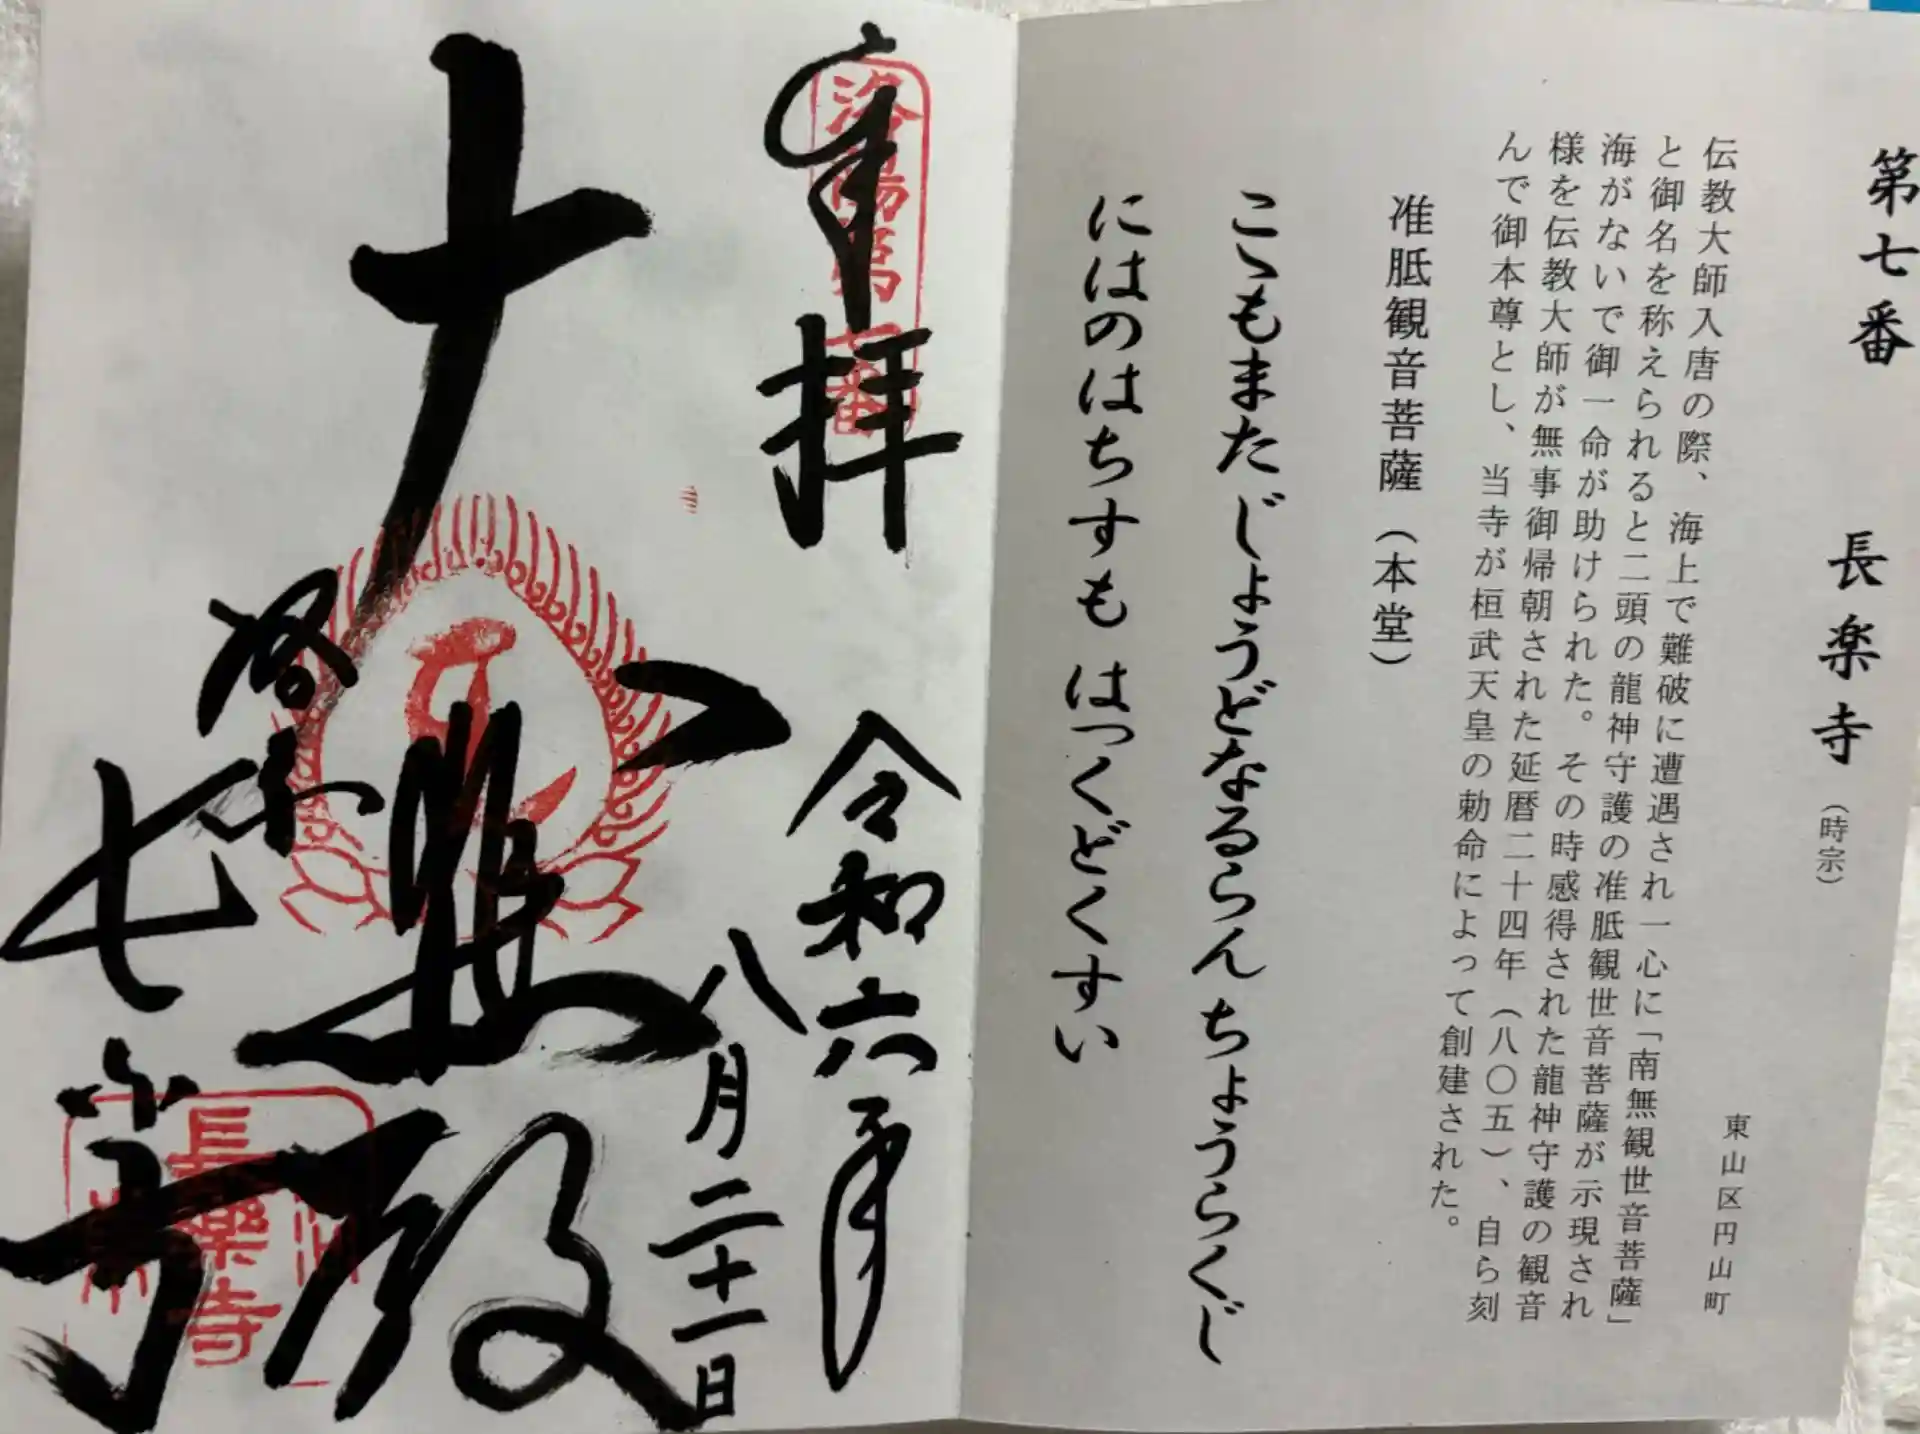 第七番 長楽寺（時宗）
東山区円山町
伝教大師入唐の際、海上で難破に遭遇され一心に「南無観世音菩薩」
と御名を称えられると二頭の龍神守護の准胝観世音菩薩が示現され
海がないで御一命が助けられた。その時感得された龍神守護の観音
様を伝教大師が無事御帰朝された延暦二十四年（八〇五）、自ら刻
んで御本尊とし、当寺が桓武天皇の勅命によって創建された。
准胝観音菩薩（本堂）
こゝもまたじょうどなるらん ちょうらくじ
にはのはちすも はっくどくすい
奉拝
洛陽第七番
令和六年
八月二十一日
大悲殿
長楽寺